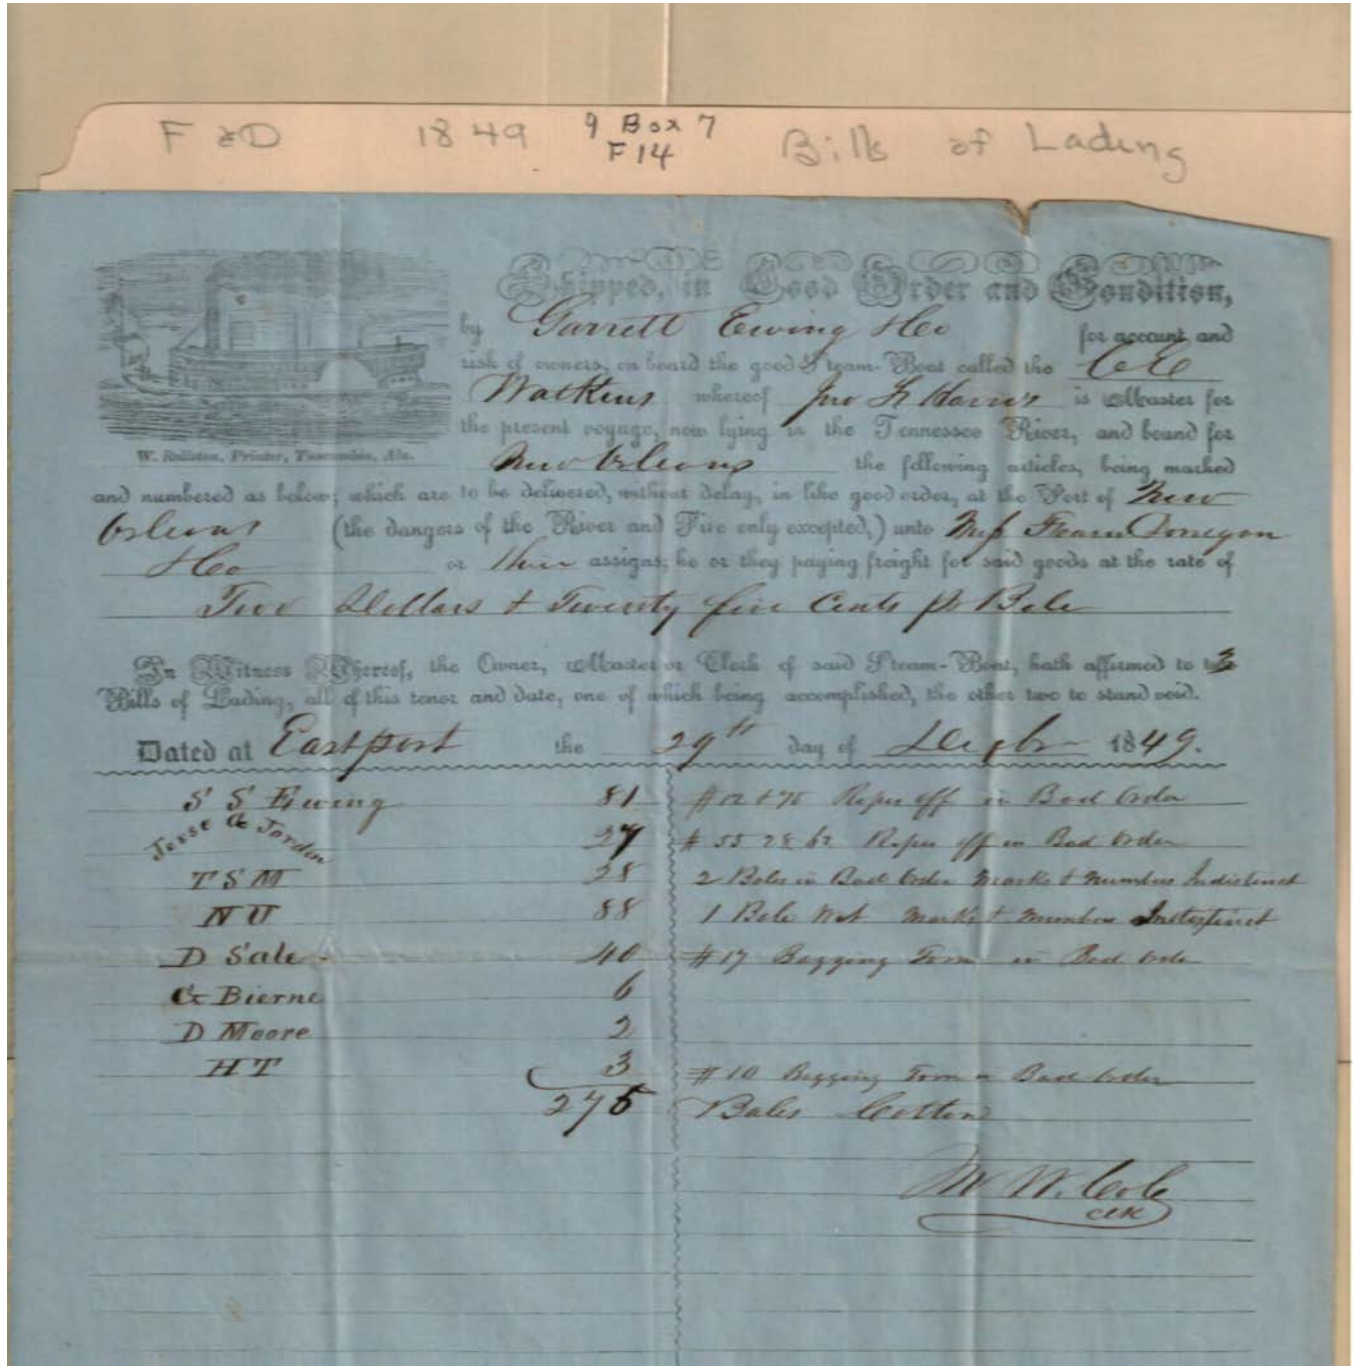 F & D 1849 9 Box 7 Bills of Lading
F 14
Shipped, in Good Order and Condition,
by Garrett Ewing & Co for account and
risk of owners, on board the good Steam-Boat called the
Watkins whereof Jno is Master for
the present voyage, now lying in the Tennessee River, and bound for
W. Rollston, Printer, Tuscumbia, Ala.
New Orleans the following articles, being marked
and numbered as below; which are to be delivered, without delay, in like good order, at the Port of New
Orleans (the dangers of the River and Fire only excepted,) unto Donegan
& Co or their assigns; he or they paying freight for said goods at the rate of
Two Dollars & Twenty five Cents pr Bale
In Witness Whereof, the Owner, Master or Clerk of said Steam-Boat, hath affirmed to 3
Bills of Lading, all of this tenor and date, one of which being accomplished, the other two to stand void.
Dated at Eastport the 29th day of 1849.
S S Ewing 81 Ropes off in Bad Order
Jesse Jorden 27 # 55 28 62 Ropes off in Bad Order
T S M 28 2 Bales in Bad Order Marks & Numbers Indistinct
N U 88 1 Bale Wet Marks & Numbers Indistinct
D Sale 40 #17 Bagging Torn in Bad Order
Bierne 6
D Moore 2
H T 3 #10 Bagging Torn in Bad Order
275 Bales Cotton
Clk